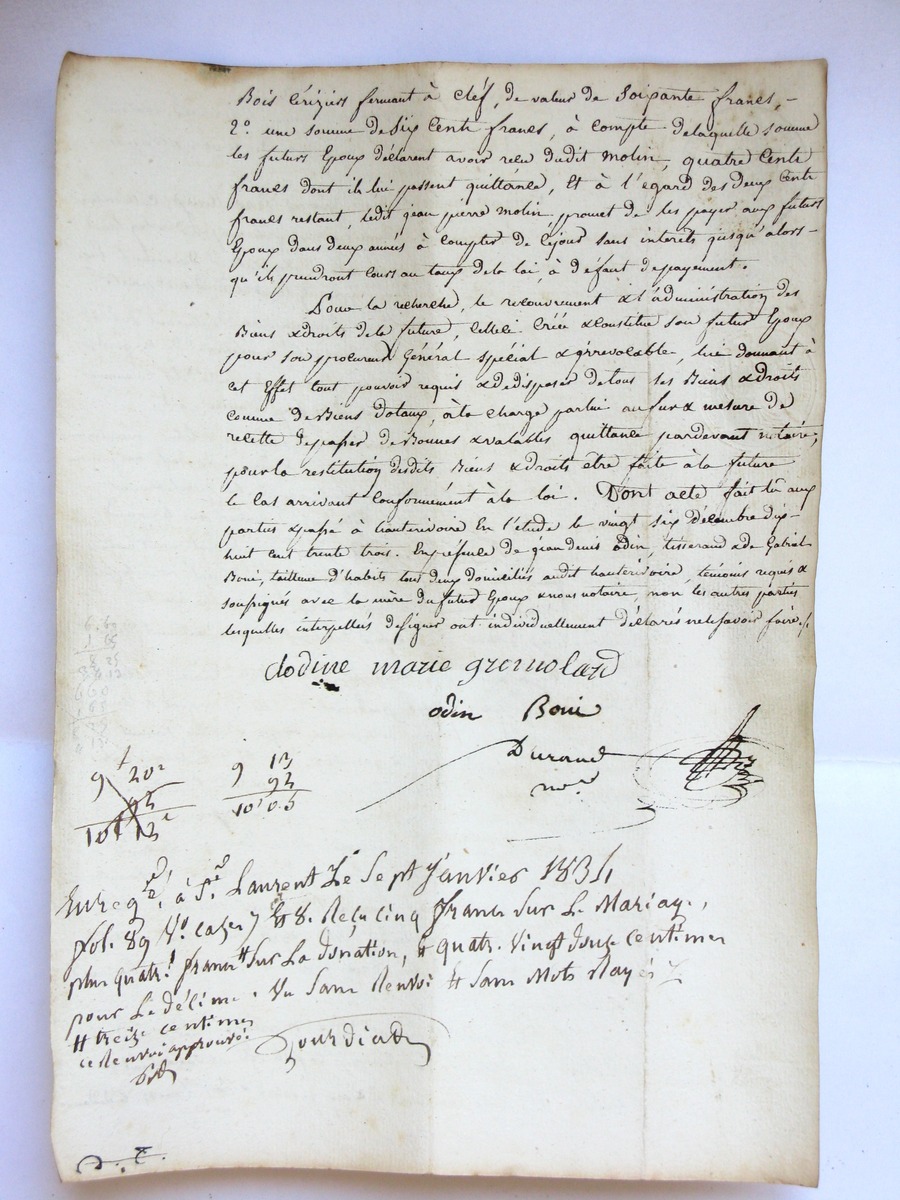 Bois cérizier fermant à cléf, de valeur de Soixante francs, -
2.º une somme de Six Cents francs, à compte de laquelle somme
les futurs Epoux déclarent avoir reçu dudit Molin, quatre Cents
francs dont ils lui passent quittance, Et à l'egard des deux Cents
francs restant, ledit jean pierre Molin promet de les payer aux futurs
Epoux dans deux années à compter de Cejour sans interets jusqu'alors -
qu'ils prendront cours au taux de la loi, à défaut de payement.
Pour la recherche, le recouvrement & l'administration des
Biens & droits de la future, Celleci Créée & Constitue son futur Epoux
pour son procureur Général spécial & irrevocable, lui donnant à
cet Effet tout pouvoir requis & de disposer de tous ses Biens & droits
comme de Biens dotaux, à la charge par lui au fur & mesure de
recette de passer de Bonnes & valables quittance pardevant notaire,
pour la restitution desdits Biens & droits etre faite à la future
le cas arrivant Conformément à la loi. Dont acte fait lû aux
parties & passé à hauterivoire En l'étude le vingt six décembre dix-
huit cent trente trois. En présence de jean denis Odin, tisserand & de Gabriel
Boni, tailleur d'habits tous deux domiciliés audit hauterivoire, témoins requis &
soussignés avec la mère du futur Epoux & nous notaire, non les autres parties
lesquelles interpellés de signer ont individuellement déclarés ne le savoir faire ./.
clodine marie grimoland
odin Boni
Durand
no.re
9 f 20 c
92
10 f 13 c
9 13
92
10' 0.5
Enregistré à St. Laurent Le Sept Janvier 1834
fol. 89 Vº. cases 7 & 8. Reçu cinq francs Sur Le Mariage,
plus quatre francs # Sur La donation, & quatre vingt douze centimes
pour Le décime. Vu Sans Renvoi & Sans Mots Rayés
# treize centimes
ce Renvoi approuvé
Jourdiad